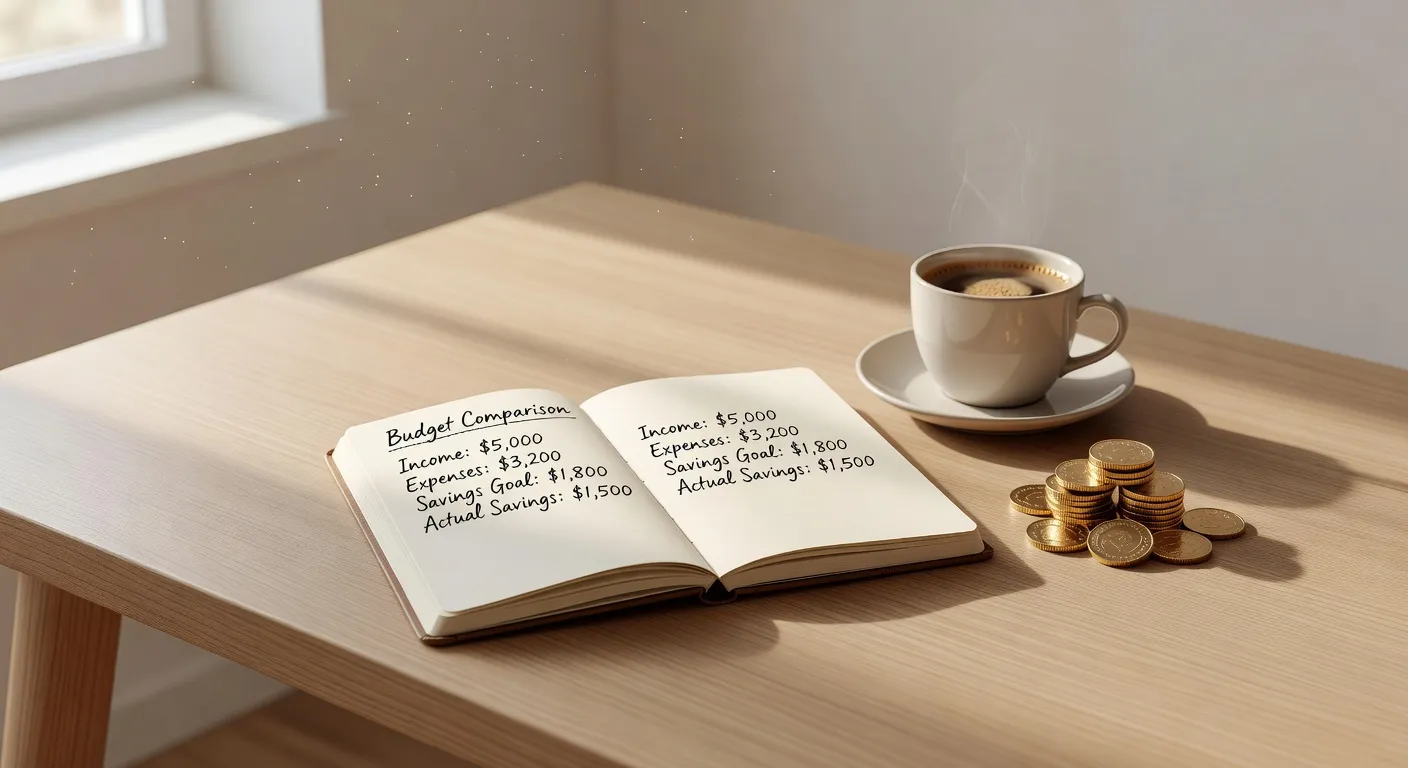 Budget Comparison
Income: $5,000
Expenses: $3,200
Savings Goal: $1,800
Actual Savings: $1,500
Income: $5,000
Expenses: $3,200
Savings Goal: $1,800
Actual Savings: $1,500